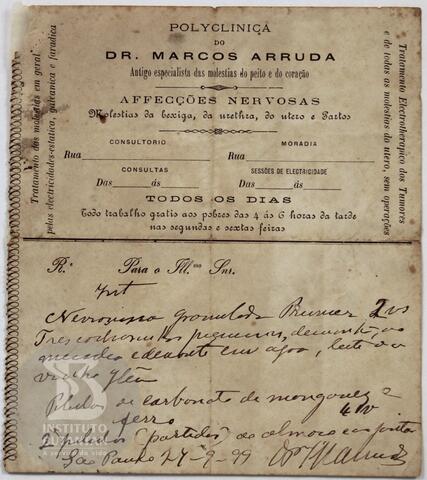 POLYCLINICA
DO
DR. MARCOS ARRUDA
Antigo especialista das molestias do peito e do coração
AFFECÇÕES NERVOSAS
Molestias da bexiga, da urethra, do utero e Partos
CONSULTORIO
MORADIA
Rua
Rua
CONSULTAS
SESSÕES DE ELECTRICIDADE
Das ás
Das ás
TODOS OS DIAS
Todo trabalho gratis aos pobres das 4 ás 6 horas da tarde
nas segundas e sextas feiras
Tratamento das molestias em geral
pelas electricidades-estatica, galvanica e faradica
Tratamento Electrotherapico dos Tumores
e de todas as molestias do utero, sem operações
R.e Para o Ill.mo Snr.
Int
granulada 2 vs
Tres
e em agoa, leite ou
vinho
Pilulas de carbonato de
ferro
2 (partidos) ao almoço e ao jantar
São Paulo 27-9-99
INSTITUTO
BUTANTAN
A serviço da vida